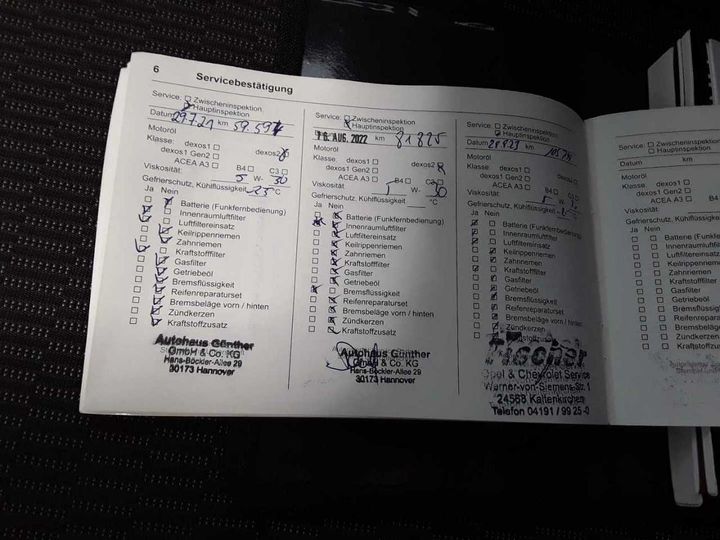 6
Servicebestätigung
Service: Zwischeninspektion
Hauptinspektion
Datum 29.7.21 km 59.597
Motoröl
Klasse: dexos1 dexos2
dexos1 Gen2
ACEA A3 B4 C3
Viskosität: 5 W- 30
Gefrierschutz, Kühlflüssigkeit -25 °C
Ja Nein
Batterie (Funkfernbedienung)
Innenraumluftfilter
Luftfiltereinsatz
Keilrippenriemen
Zahnriemen
Kraftstofffilter
Gasfilter
Getriebeöl
Bremsflüssigkeit
Reifenreparaturset
Bremsbeläge vorn / hinten
Zündkerzen
Kraftstoffzusatz
Autohaus Günther
GmbH & Co. KG
Hans-Böckler-Allee 29
30173 Hannover
Service: Zwischeninspektion
Hauptinspektion
AUG. 2022 km 81825
Motoröl
Klasse: dexos1 dexos2
dexos1 Gen2
ACEA A3 B4 C3
Viskosität: W- 30
Gefrierschutz, Kühlflüssigkeit °C
Ja Nein
Batterie (Funkfernbedienung)
Innenraumluftfilter
Luftfiltereinsatz
Keilrippenriemen
Zahnriemen
Kraftstofffilter
Gasfilter
Getriebeöl
Bremsflüssigkeit
Reifenreparaturset
Bremsbeläge vorn / hinten
Zündkerzen
Kraftstoffzusatz
Autohaus Günther
GmbH & Co. KG
Hans-Böckler-Allee 29
30173 Hannover
Service: Zwischeninspektion
Hauptinspektion
Datum km
Motoröl
Klasse: dexos1 dexos2
dexos1 Gen2
ACEA A3 B4 C3
Viskosität: W-
Gefrierschutz, Kühlflüssigkeit °C
Ja Nein
Batterie (Funkfernbedienung)
Innenraumluftfilter
Luftfiltereinsatz
Keilrippenriemen
Zahnriemen
Kraftstofffilter
Gasfilter
Getriebeöl
Bremsflüssigkeit
Reifenreparaturset
Bremsbeläge vorn / hinten
Zündkerzen
Fischer
Opel & Chevrolet Service
Werner-von-Siemens-Str. 1
24568 Kaltenkirchen
Telefon 04191 / 99 25-0
Service: Zwischeninspektion
Hauptinspektion
Datum km
Motoröl
Klasse: dexos1
dexos1 Gen2
ACEA A3
Viskosität:
Gefrierschutz, Kühlflüssigkeit
Ja Nein
Batterie
Innenraumluftfilter
Luftfiltereinsatz
Keilrippenriemen
Zahnriemen
Kraftstofffilter
Gasfilter
Getriebeöl
Bremsflüssigkeit
Zündkerzen